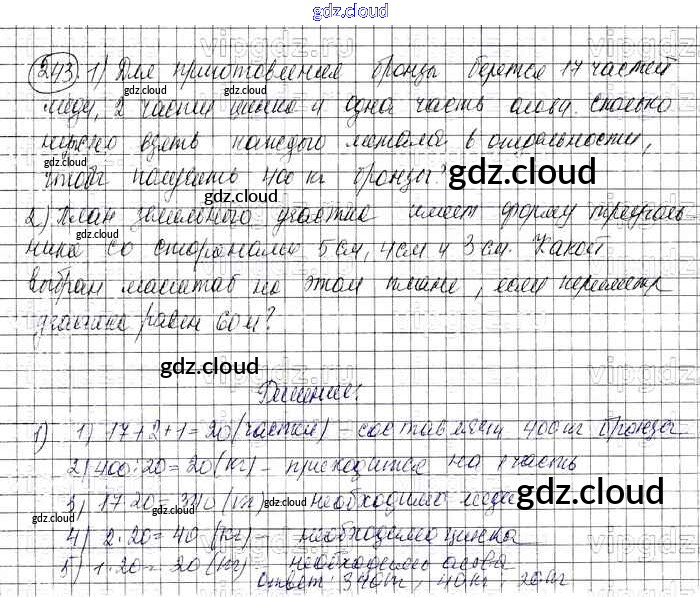 gdz.cloud
243. 1) Для приготовления бронзы берется 17 частей
меди, 2 части цинка и одна часть олова. Сколько
нужно взять каждого металла в отдельности,
чтобы получить 400 кг бронзы?
2) План земельного участка имеет форму треуголь
ника со сторонами 5 см, 4 см и 3 см. Какой
выбран масштаб на этом плане, если периметр
участка равен 60 м?
Решение:
1) 1) 17+2+1=20 (частей) – составляет 400 кг бронзы
2) 400:20=20 (кг) – приходится на 1 часть
3) 17·20=340 (кг) – необходимо меди
4) 2·20=40 (кг) – необходимо цинка
5) 1·20=20 (кг) – необходимо олова
Ответ: 340 кг, 40 кг, 20 кг
gdz.cloud
gdz.cloud
gdz.cloud
gdz.cloud
gdz.cloud
gdz.cloud
gdz.cloud
gdz.cloud
gdz.cloud
gdz.cloud
gdz.cloud